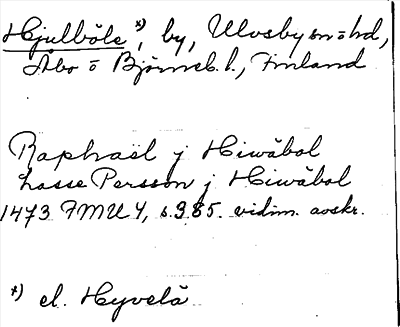 Hjulböle *), by, Ulvsby sn o hd,
Åbo o Björneb. l., Finland
Raphael j Hiwåbol
Lasse Persson j Hiwåbol
1473 FMU 4, s. 985. vidim. avskr.
*) el. Hyvelä